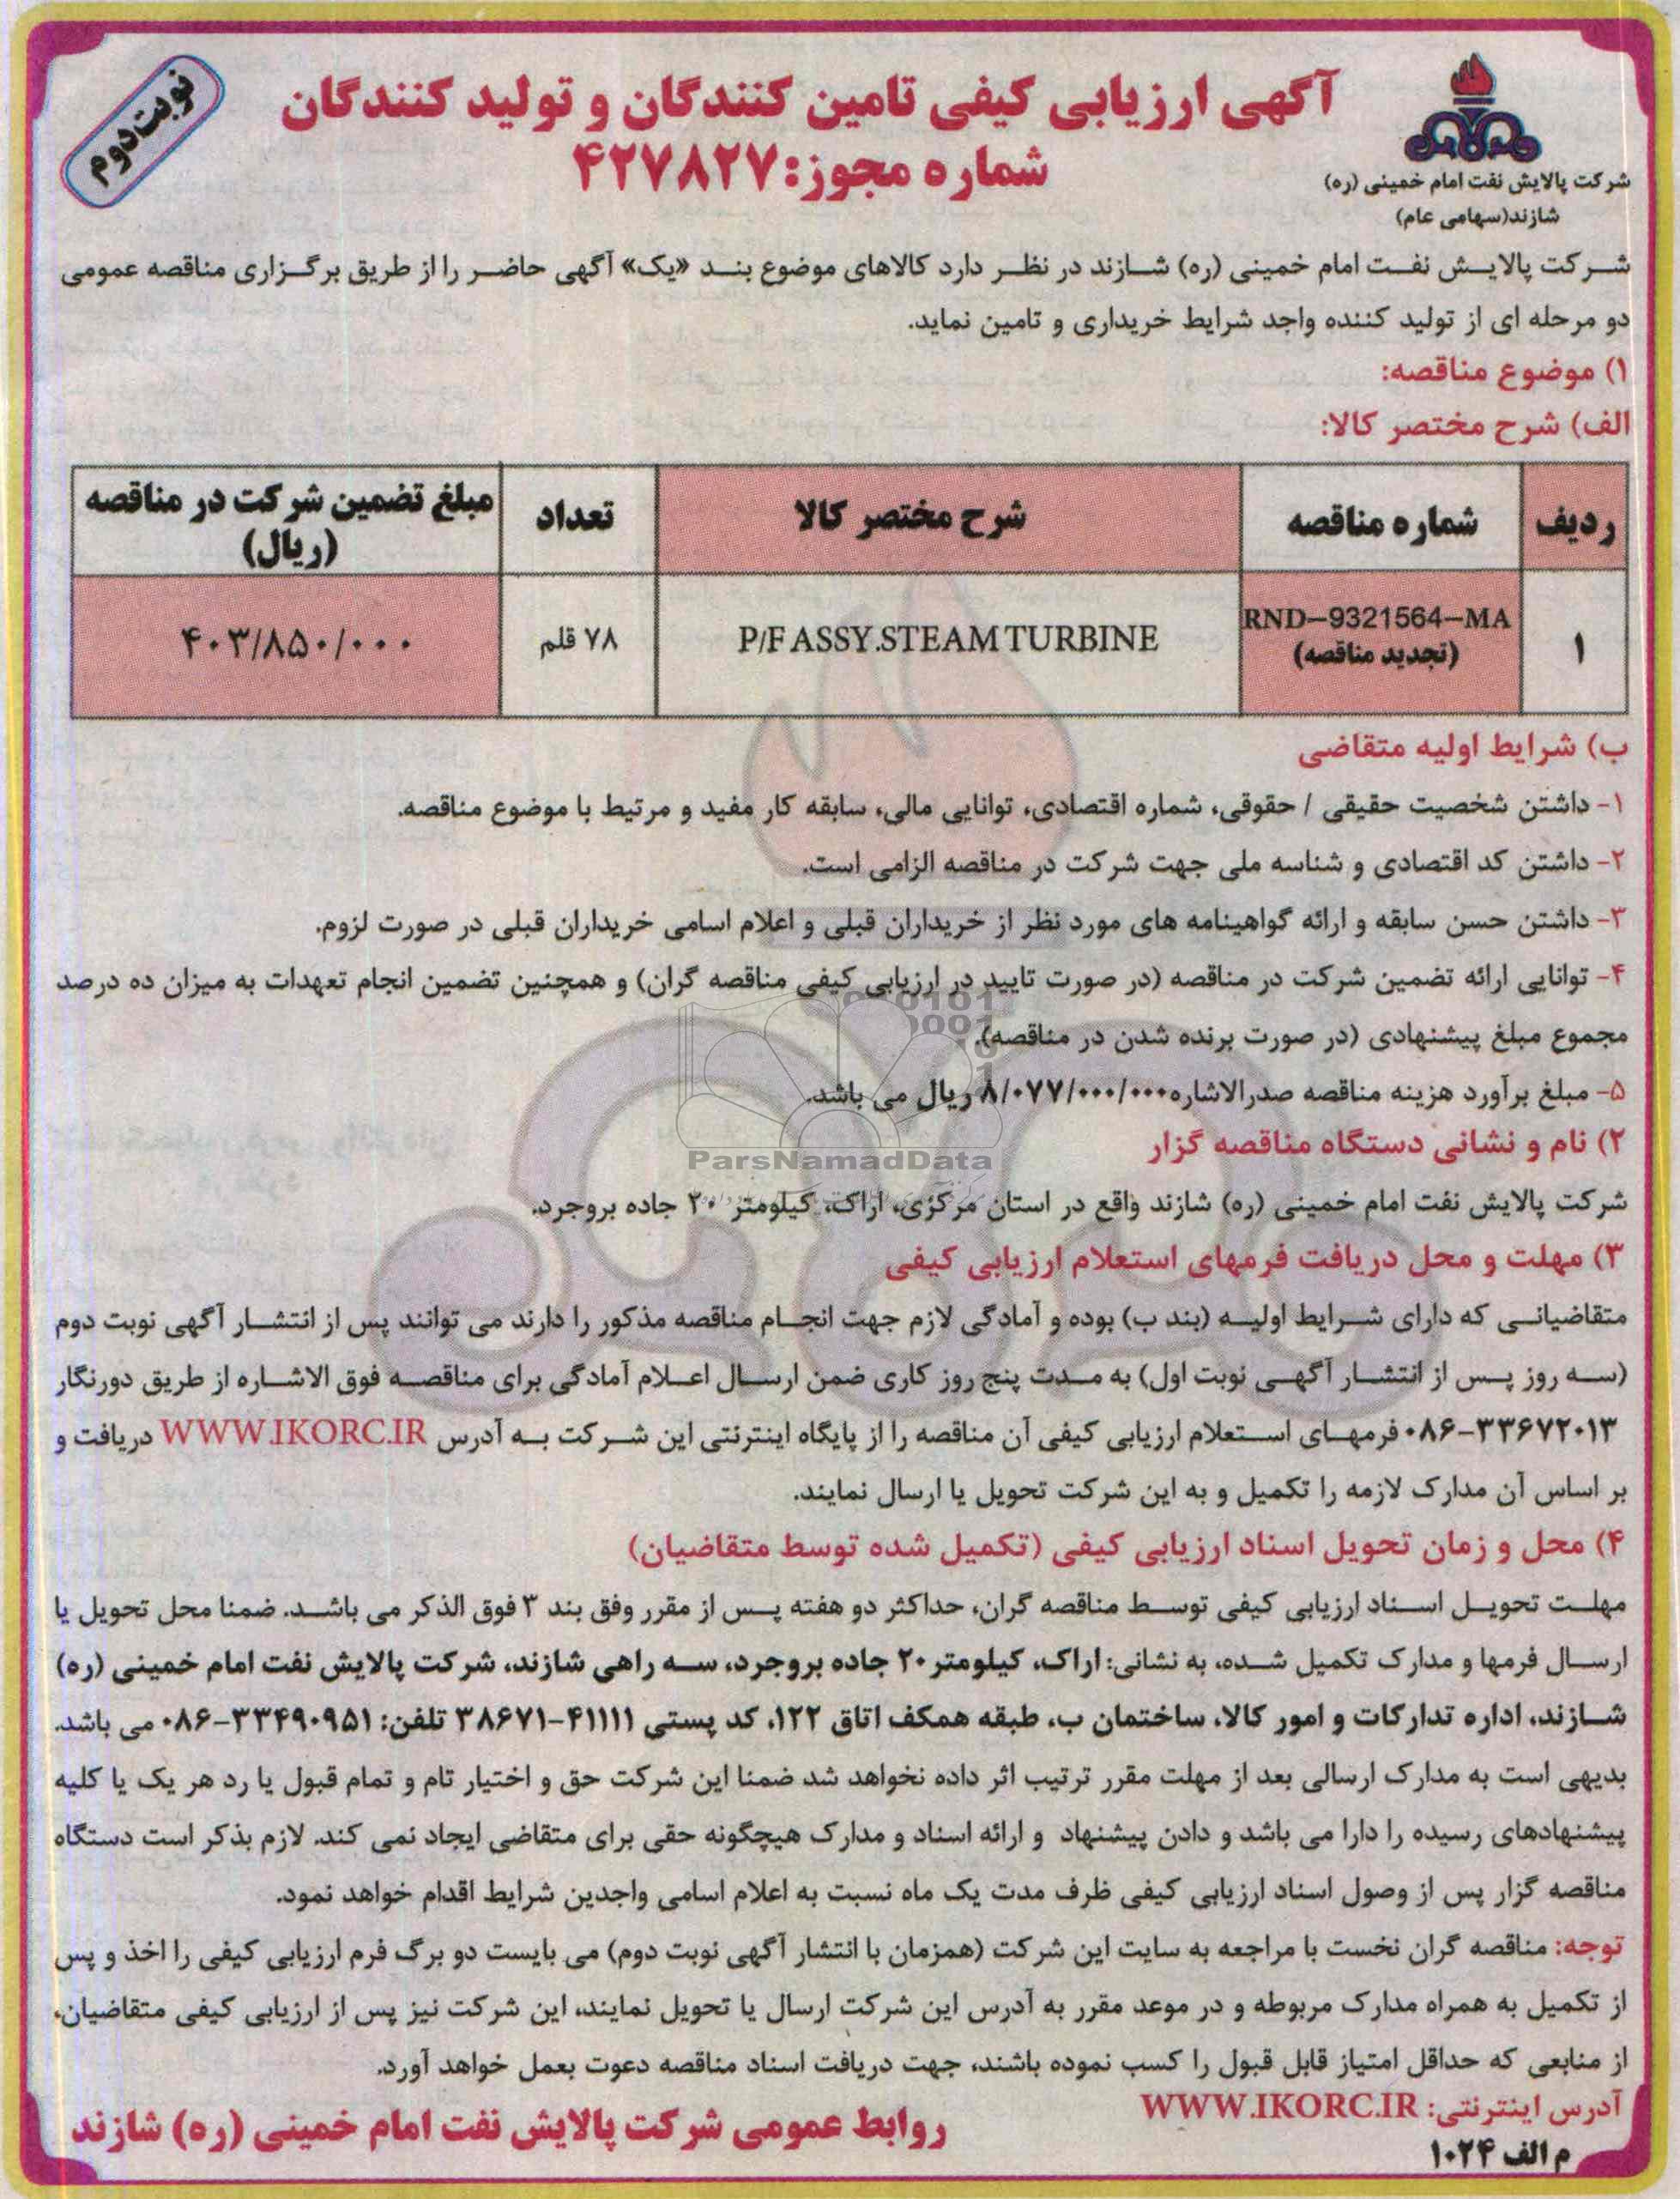 آگهی ارزیابی کیفی تامین کنندگان و تولید کنندگان
شماره مجوز: ۴۲۷۸۲۷
نوبت دوم
شرکت پالایش نفت امام خمینی (ره)
شازند(سهامی عام)
شرکت پالایش نفت امام خمینی (ره) شازند در نظر دارد کالاهای موضوع بند «یک» آگهی حاضر را از طریق برگزاری مناقصه عمومی
دو مرحله ای از تولید کننده واجد شرایط خریداری و تامین نماید.
۱) موضوع مناقصه:
الف) شرح مختصر کالا:
ردیف شماره مناقصه شرح مختصر کالا تعداد مبلغ تضمین شرکت در مناقصه (ریال)
۱ RND-9321564-MA (تجدید مناقصه) P/F ASSY.STEAM TURBINE ۷۸ قلم ۴۰۳/۸۵۰/۰۰۰
ب) شرایط اولیه متقاضی
۱- داشتن شخصیت حقیقی / حقوقی، شماره اقتصادی، توانایی مالی، سابقه کار مفید و مرتبط با موضوع مناقصه.
۲- داشتن کد اقتصادی و شناسه ملی جهت شرکت در مناقصه الزامی است.
۳- داشتن حسن سابقه و ارائه گواهینامه های مورد نظر از خریداران قبلی و اعلام اسامی خریداران قبلی در صورت لزوم.
۴- توانایی ارائه تضمین شرکت در مناقصه (در صورت تایید در ارزیابی کیفی مناقصه گران) و همچنین تضمین انجام تعهدات به میزان ده درصد
مجموع مبلغ پیشنهادی (در صورت برنده شدن در مناقصه).
۵- مبلغ برآورد هزینه مناقصه صدرالاشاره ۸/۰۷۷/۰۰۰/۰۰۰ ریال می باشد.
۲) نام و نشانی دستگاه مناقصه گزار
ParsNamadData
شرکت پالایش نفت امام خمینی (ره) شازند واقع در استان مرکزی، اراک، کیلومتر ۲۰ جاده بروجرد.
۳) مهلت و محل دریافت فرمهای استعلام ارزیابی کیفی
متقاضیانی که دارای شرایط اولیه (بند ب) بوده و آمادگی لازم جهت انجام مناقصه مذکور را دارند می توانند پس از انتشار آگهی نوبت دوم
(سه روز پس از انتشار آگهی نوبت اول) به مدت پنج روز کاری ضمن ارسال اعلام آمادگی برای مناقصه فوق الاشاره از طریق دورنگار
۰۸۶-۳۳۶۷۲۰۱۳ فرمهای استعلام ارزیابی کیفی آن مناقصه را از پایگاه اینترنتی این شرکت به آدرس WWW.IKORC.IR دریافت و
بر اساس آن مدارک لازمه را تکمیل و به این شرکت تحویل یا ارسال نمایند.
۴) محل و زمان تحویل اسناد ارزیابی کیفی (تکمیل شده توسط متقاضیان)
مهلت تحویل اسناد ارزیابی کیفی توسط مناقصه گران، حداکثر دو هفته پس از مقرر وفق بند ۳ فوق الذکر می باشد. ضمنا محل تحویل یا
ارسال فرمها و مدارک تکمیل شده، به نشانی: اراک، کیلومتر ۲۰ جاده بروجرد، سه راهی شازند، شرکت پالایش نفت امام خمینی (ره)
شازند، اداره تدارکات و امور کالا، ساختمان ب، طبقه همکف اتاق ۱۲۲، کد پستی ۴۱۱۱۱-۳۸۶۷۱ تلفن: ۳۳۴۹۰۹۵۱-۰۸۶ می باشد.
بدیهی است به مدارک ارسالی بعد از مهلت مقرر ترتیب اثر داده نخواهد شد ضمنا این شرکت حق و اختیار تام و تمام قبول یا رد هر یک یا کلیه
پیشنهادهای رسیده را دارا می باشد و دادن پیشنهاد و ارائه اسناد و مدارک هیچگونه حقی برای متقاضی ایجاد نمی کند. لازم بذکر است دستگاه
مناقصه گزار پس از وصول اسناد ارزیابی کیفی ظرف مدت یک ماه نسبت به اعلام اسامی واجدین شرایط اقدام خواهد نمود.
توجه: مناقصه گران نخست با مراجعه به سایت این شرکت (همزمان با انتشار آگهی نوبت دوم) می بایست دو برگ فرم ارزیابی کیفی را اخذ و پس
از تکمیل به همراه مدارک مربوطه و در موعد مقرر به آدرس این شرکت ارسال یا تحویل نمایند، این شرکت نیز پس از ارزیابی کیفی متقاضیان،
از منابعی که حداقل امتیاز قابل قبول را کسب نموده باشند، جهت دریافت اسناد مناقصه دعوت بعمل خواهد آورد.
آدرس اینترنتی: WWW.IKORC.IR
م الف ۱۰۲۴
روابط عمومی شرکت پالایش نفت امام خمینی (ره) شازند